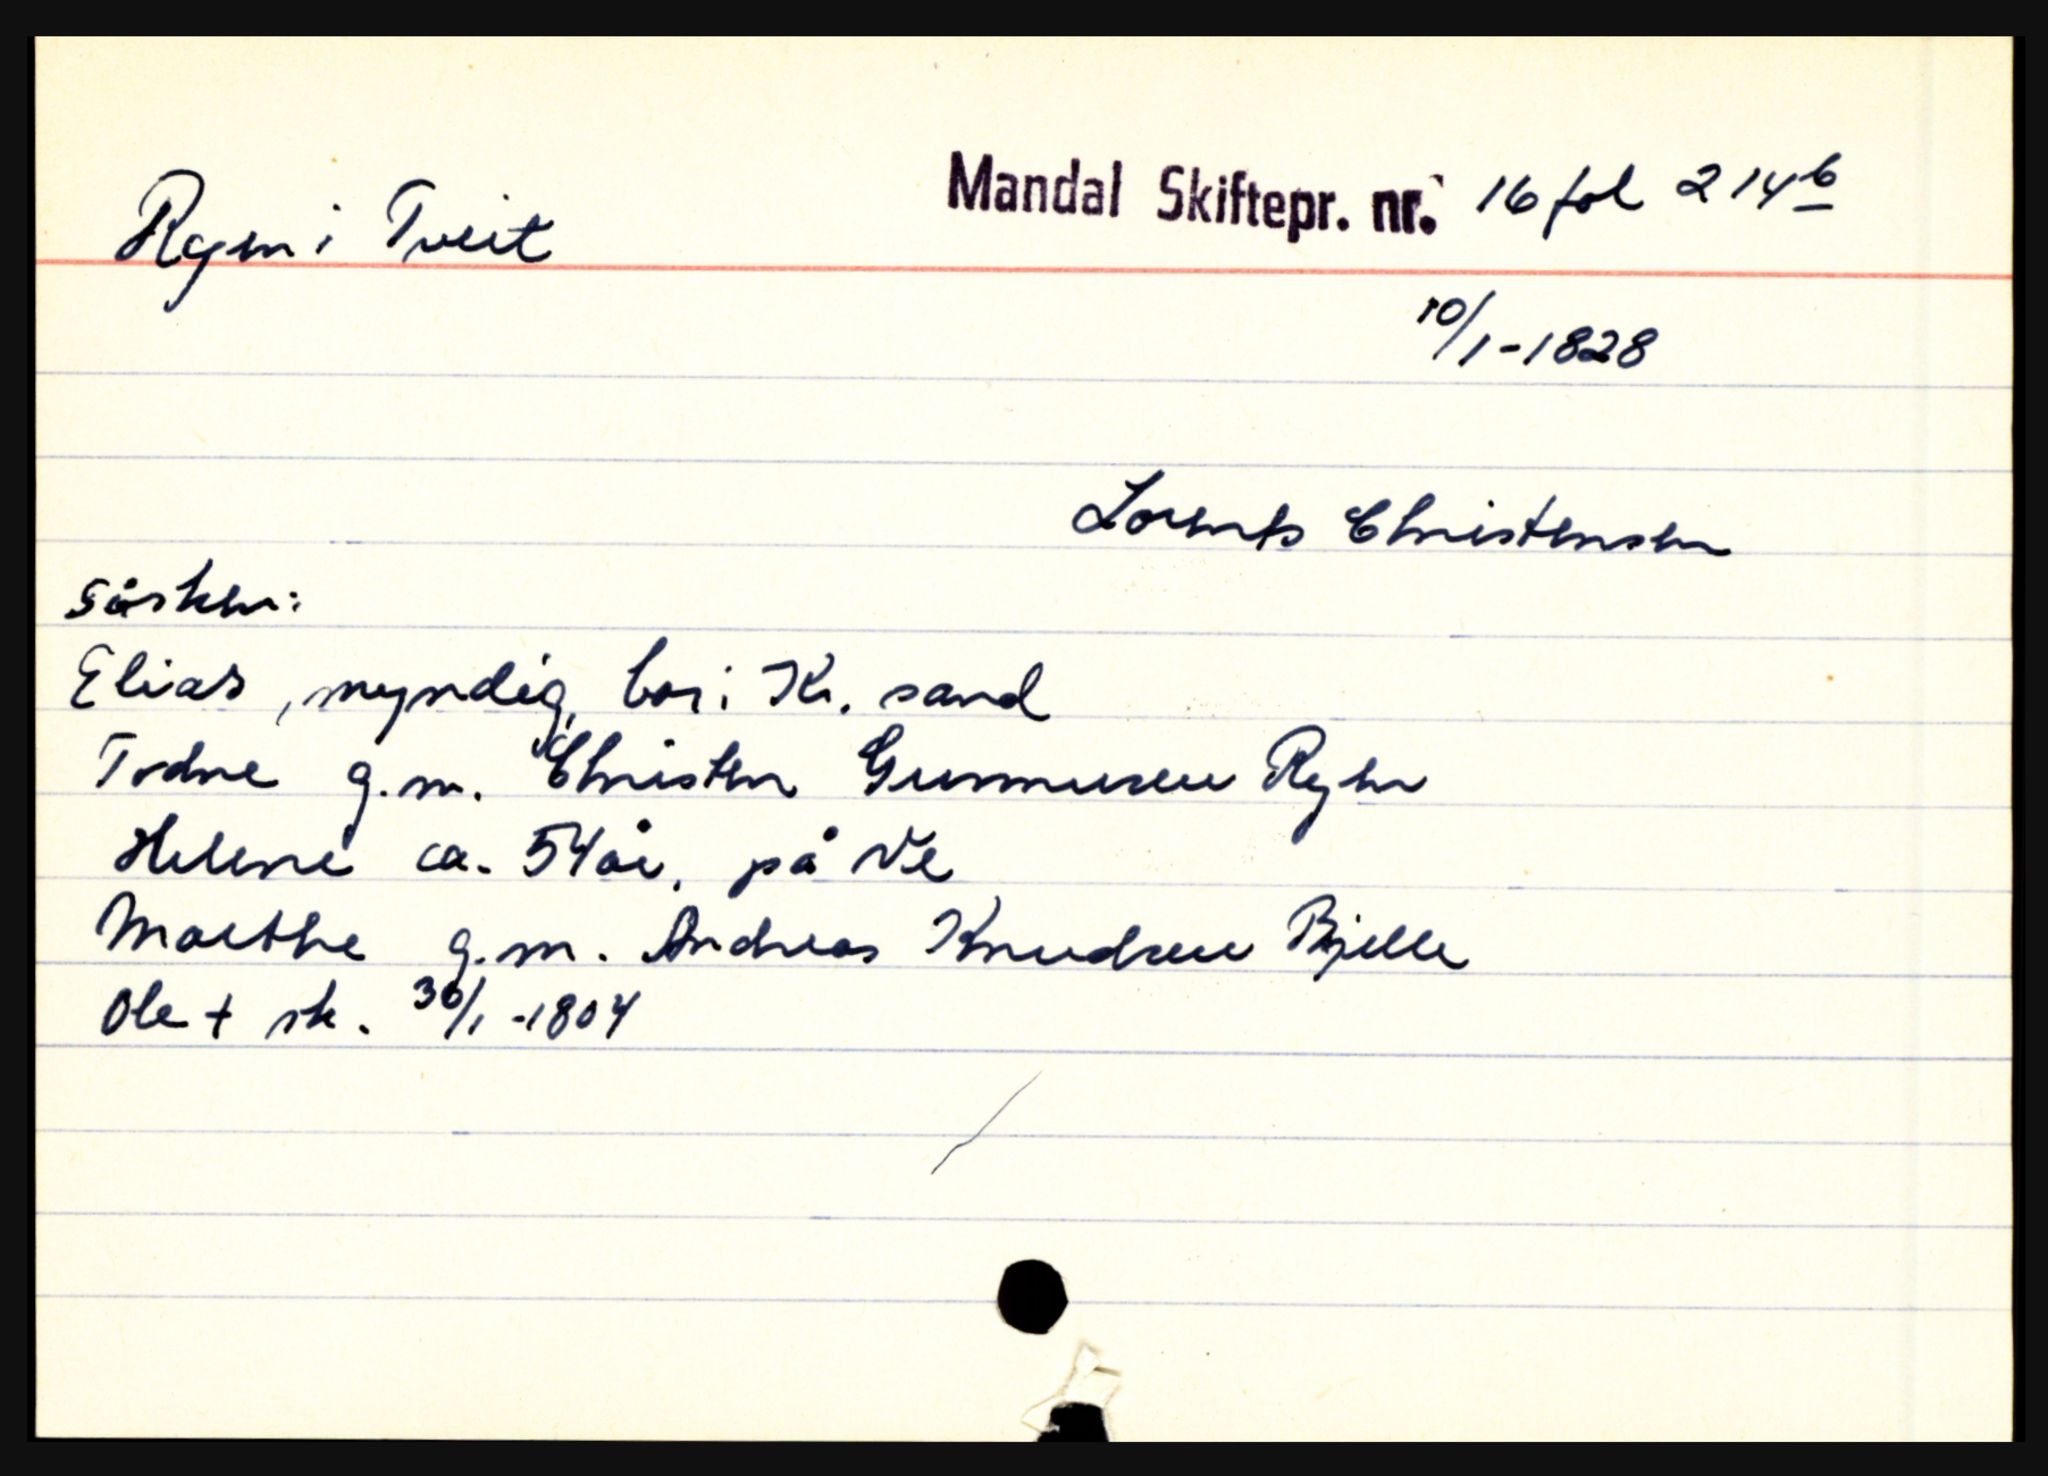 Ryen i Tveit
Mandal Skiftepr. nr. 16 fol 214b
10/1-1828
Lorents Christensen
søsken:
Elias, myndig, bor i Kr. sand
Todne g.m. Christen Gunmusen Ryen
Helene ca. 54 år, på Ve
Marthe g.m. Andreas Knudsen Bjelle
Ole + sk. 30/1-1804